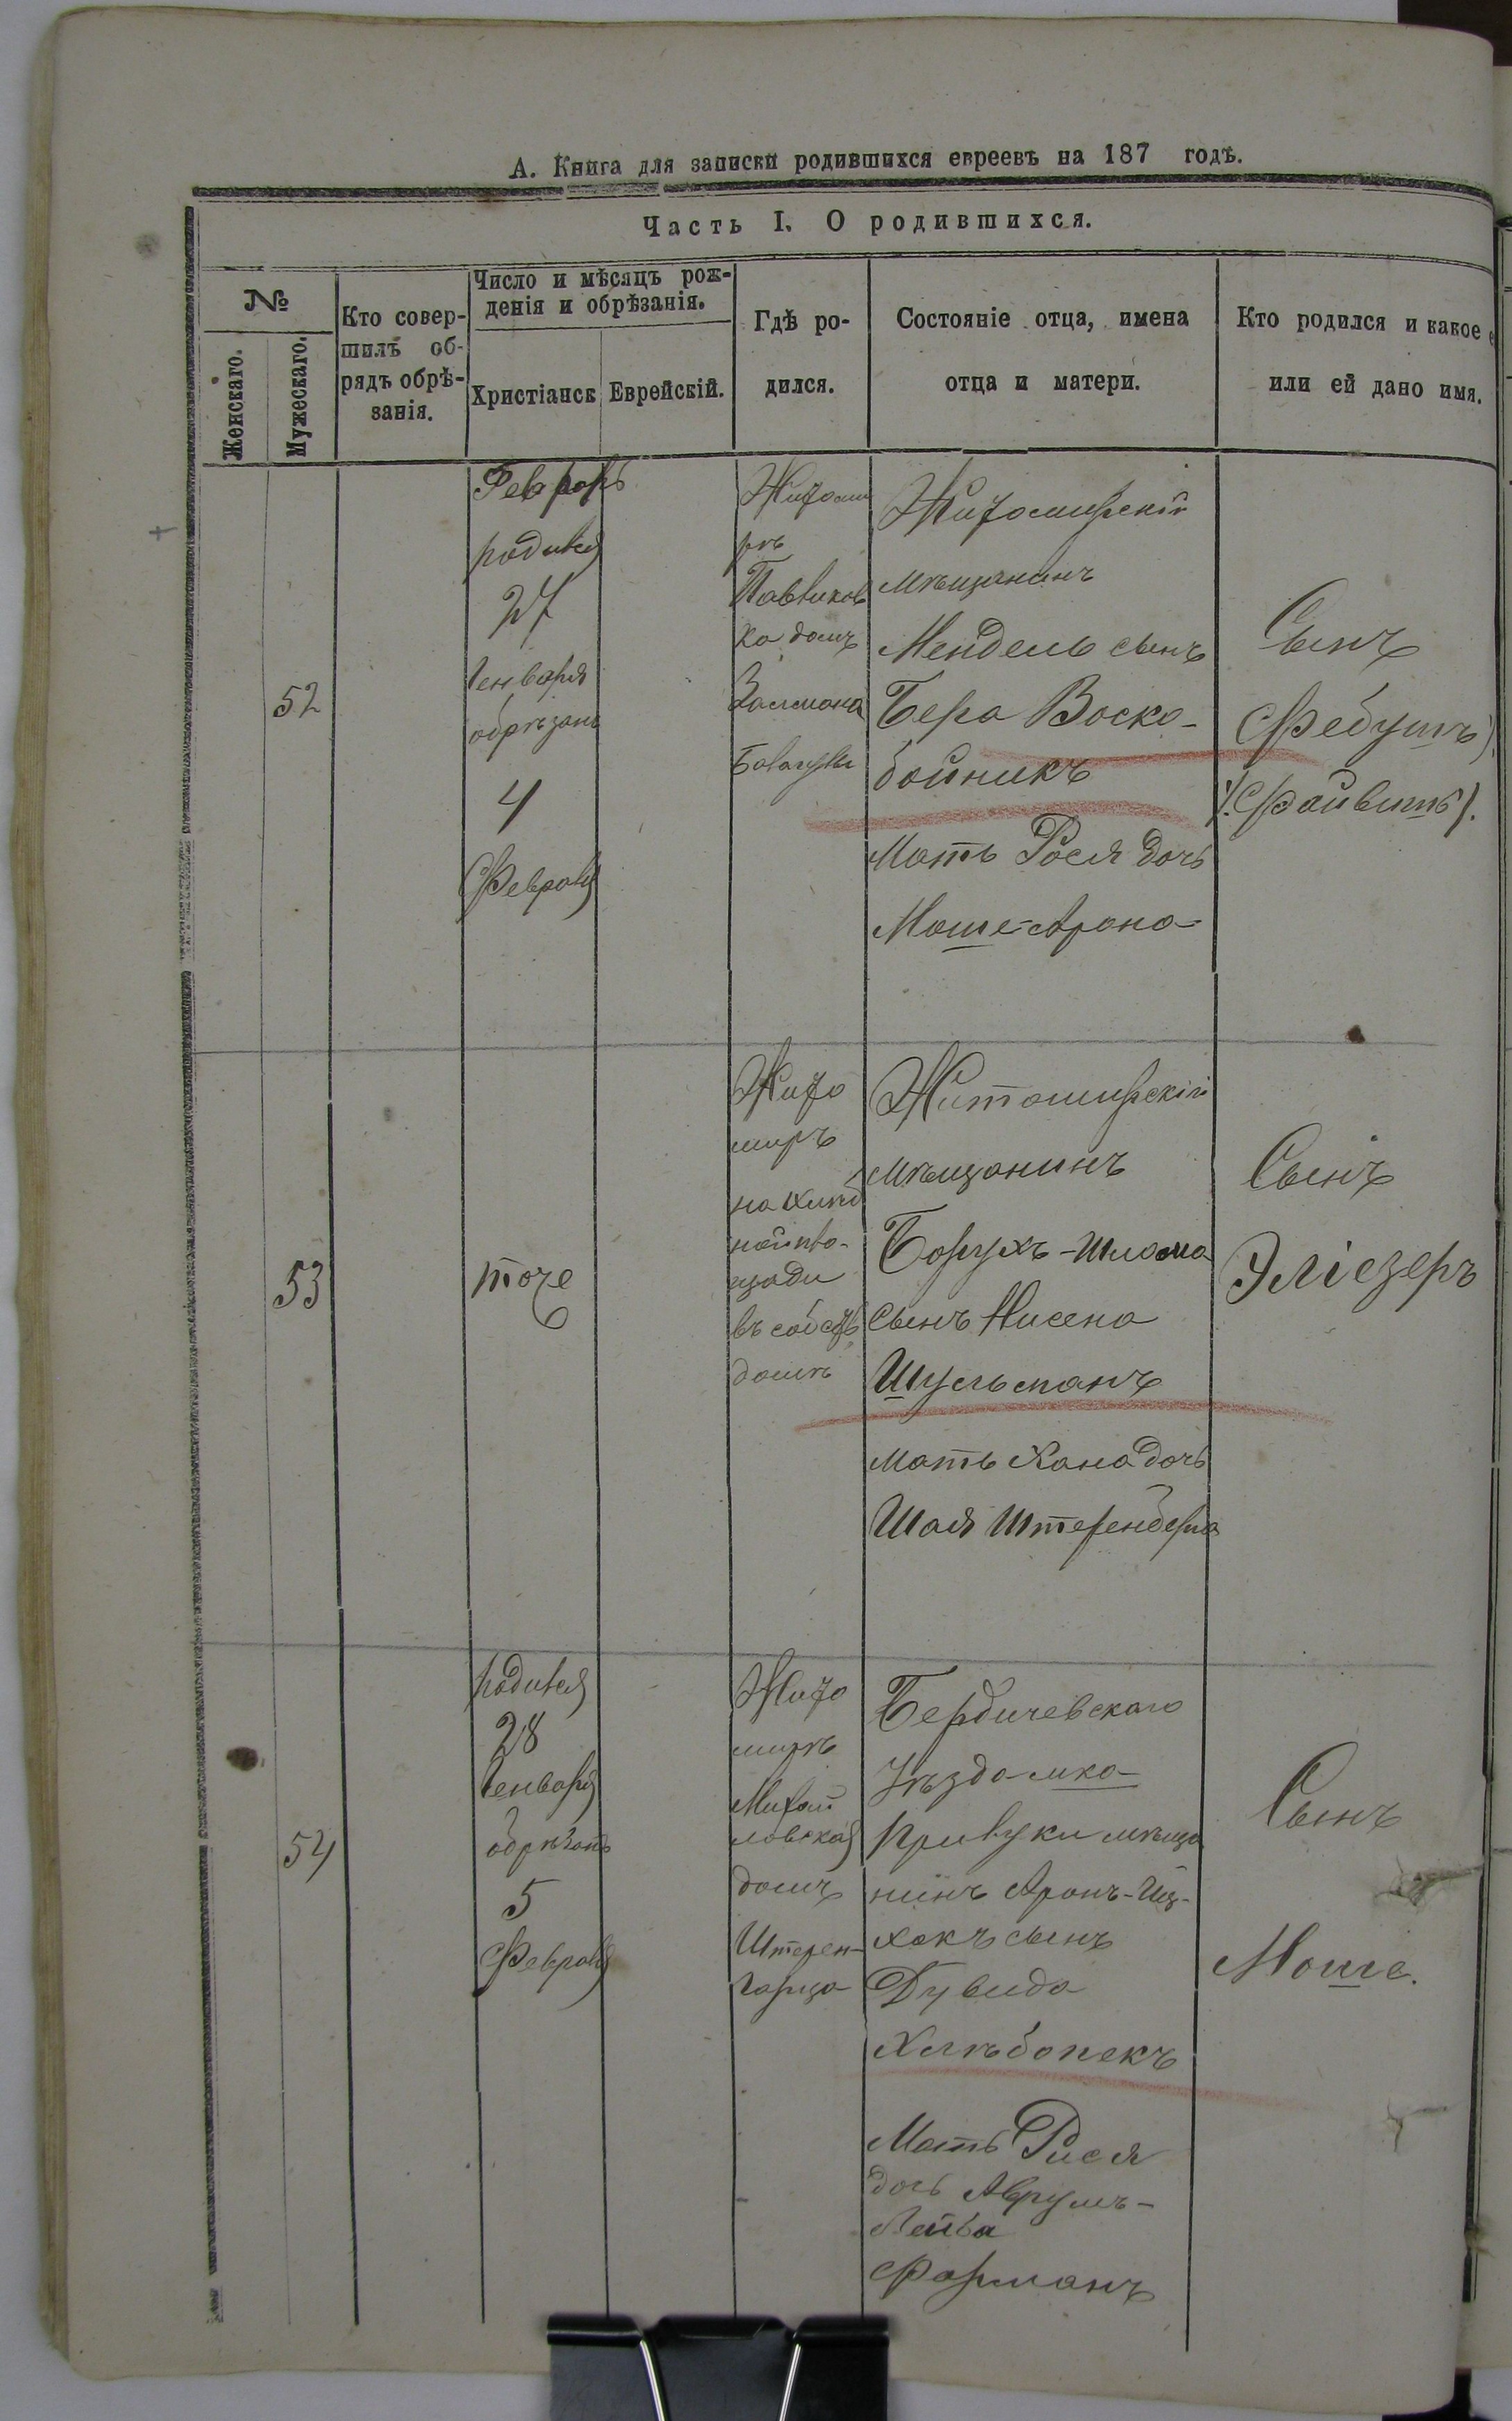 А. Книга для записки родившихся евреевъ на 187 годъ.
Часть I. О родившихся.
№
Женскаго.
Мужескаго.
Кто совер-
шилъ об-
рядъ обрѣ-
занія.
Число и мѣсяцъ рож-
денія и обрѣзанія.
Христіанск
Еврейскій.
Гдѣ ро-
дился.
Состояніе отца, имена
отца и матери.
Кто родился и какое е
или ей дано имя.
52
Февраль
родился
27
Генваря
обрѣзанъ
4
Февраля
Житоми
рѣ
ка домъ
Залмана
Житомирскій
мѣщанинъ
Мендель сынъ
Бера Воско-
бойникъ
Мать Рося дочь
Моше-Арона
Сынъ
(Фебушъ)
(Файвишъ).
53
тоже
Жито
миръ
на
ной пло-
щади
въ собств
домѣ
Житомирскій
мѣщанинъ
Борухъ-Шлома
сынъ Нисена
Шульманъ
мать Хана дочь
Шая Штеренберга
Сынъ
Эліезеръ
54
родился
28
Генваря
обрѣзанъ
5
Февраля
Жито
мирѣ
Михай
ловская
домъ
Штерен-
гарца
Бердичевскаго
Уѣзда м-ка
мѣща
нинъ Аронъ-Иц-
хокъ сынъ
Дувида
Хлѣбопекъ
Мать Рися
дочь Аврумъ-
Лейба
Форманъ
Сынъ
Моше.